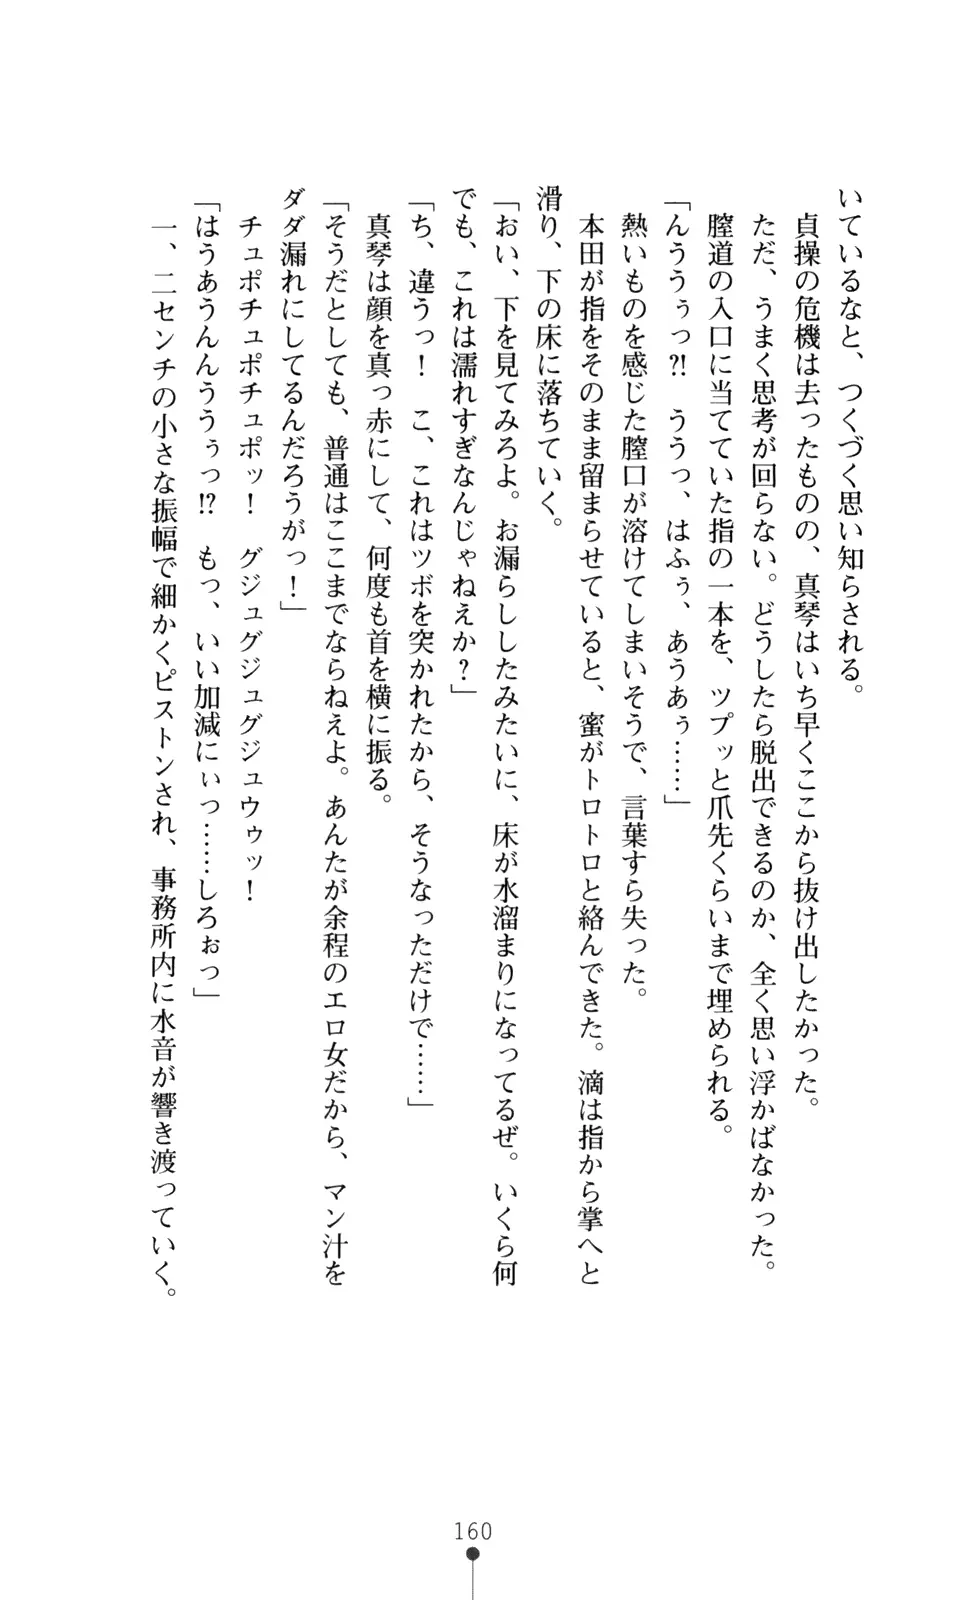 いているなと、つくづく思い知らされる。
貞操の危機は去ったものの、真琴はいち早くここから抜け出したかった。
ただ、うまく思考が回らない。どうしたら脱出できるのか、全く思い浮かばなかった。
膣道の入口に当てていた指の一本を、ツプッと爪先くらいまで埋められる。
「んううぅっ?!　ううっ、はふぅ、あうあぅ……」
熱いものを感じた膣口が溶けてしまいそうで、言葉すら失った。
本田が指をそのまま留まらせていると、蜜がトロトロと絡んできた。滴は指から掌へと
滑り、下の床に落ちていく。
「おい、下を見てみろよ。お漏らししたみたいに、床が水溜まりになってるぜ。いくら何
でも、これは濡れすぎなんじゃねえか?」
「ち、違うっ!　こ、これはツボを突かれたから、そうなっただけで……」
真琴は顔を真っ赤にして、何度も首を横に振る。
「そうだとしても、普通はここまでならねえよ。あんたが余程のエロ女だから、マン汁を
ダダ漏れにしてるんだろうがっ!」
チュポチュポチュポッ!　グジュグジュグジュウゥッ!
「はうあうんんううぅっ!?　もっ、いい加減にぃっ……しろぉっ」
一、二センチの小さな振幅で細かくピストンされ、事務所内に水音が響き渡っていく。
160